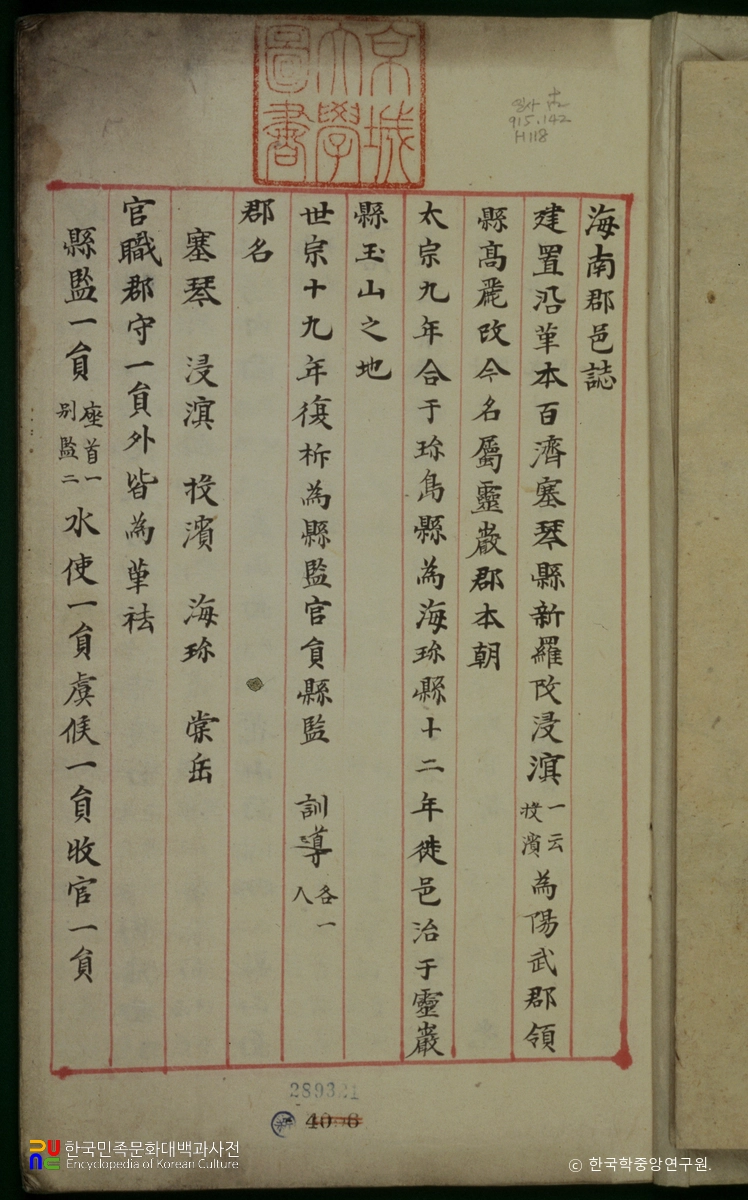 海南郡邑誌
建置沿革本百濟塞琴縣新羅改浸溟一云投濱為陽武郡領
縣高麗改今名屬靈巖郡本朝
太宗九年合于珎島縣為海珎縣十二年徙邑治于靈巖
縣玉山之地
世宗十九年復析為縣監官員縣監 訓導各一人
郡名
塞琴 浸溟 投濱 海珎 棠岳
官職郡守一員外皆為革袪
縣監一員座首一别監二水使一員虞候一員收官一員
京城大學圖書
915.142
H118
289321
40 6
한국민족문화대백과사전
Encyclopedia of Korean Culture
© 한국학중앙연구원.